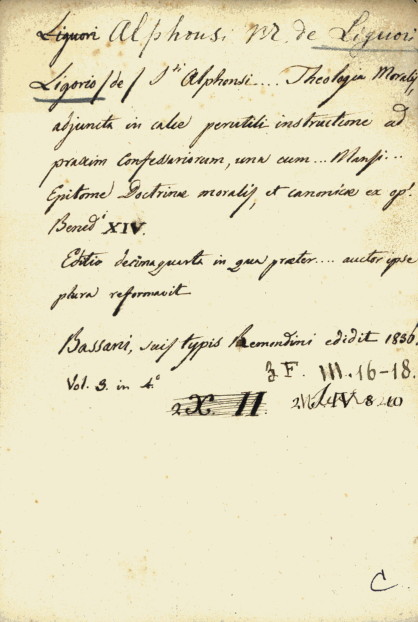 Liguori Alphonsi M. de Liguori
Ligorio /de/ Sti Alphonsi.... Theologia Moralis,
adjuncta in calce perutili instructione ad
praxim Confessariorum, una cum... Mansi...
Epitome Doctrinæ moralis, et canonicæ ex op.
Bened.i XIV.
Editio decimaquarta in qua præter.... auctor ipse
plura reformavit
Bassani, suis typis Remondini edidit 1836.
Vol. 3. in 4.°
z F. III.16-18.
2 X. II. IV 8 10
C